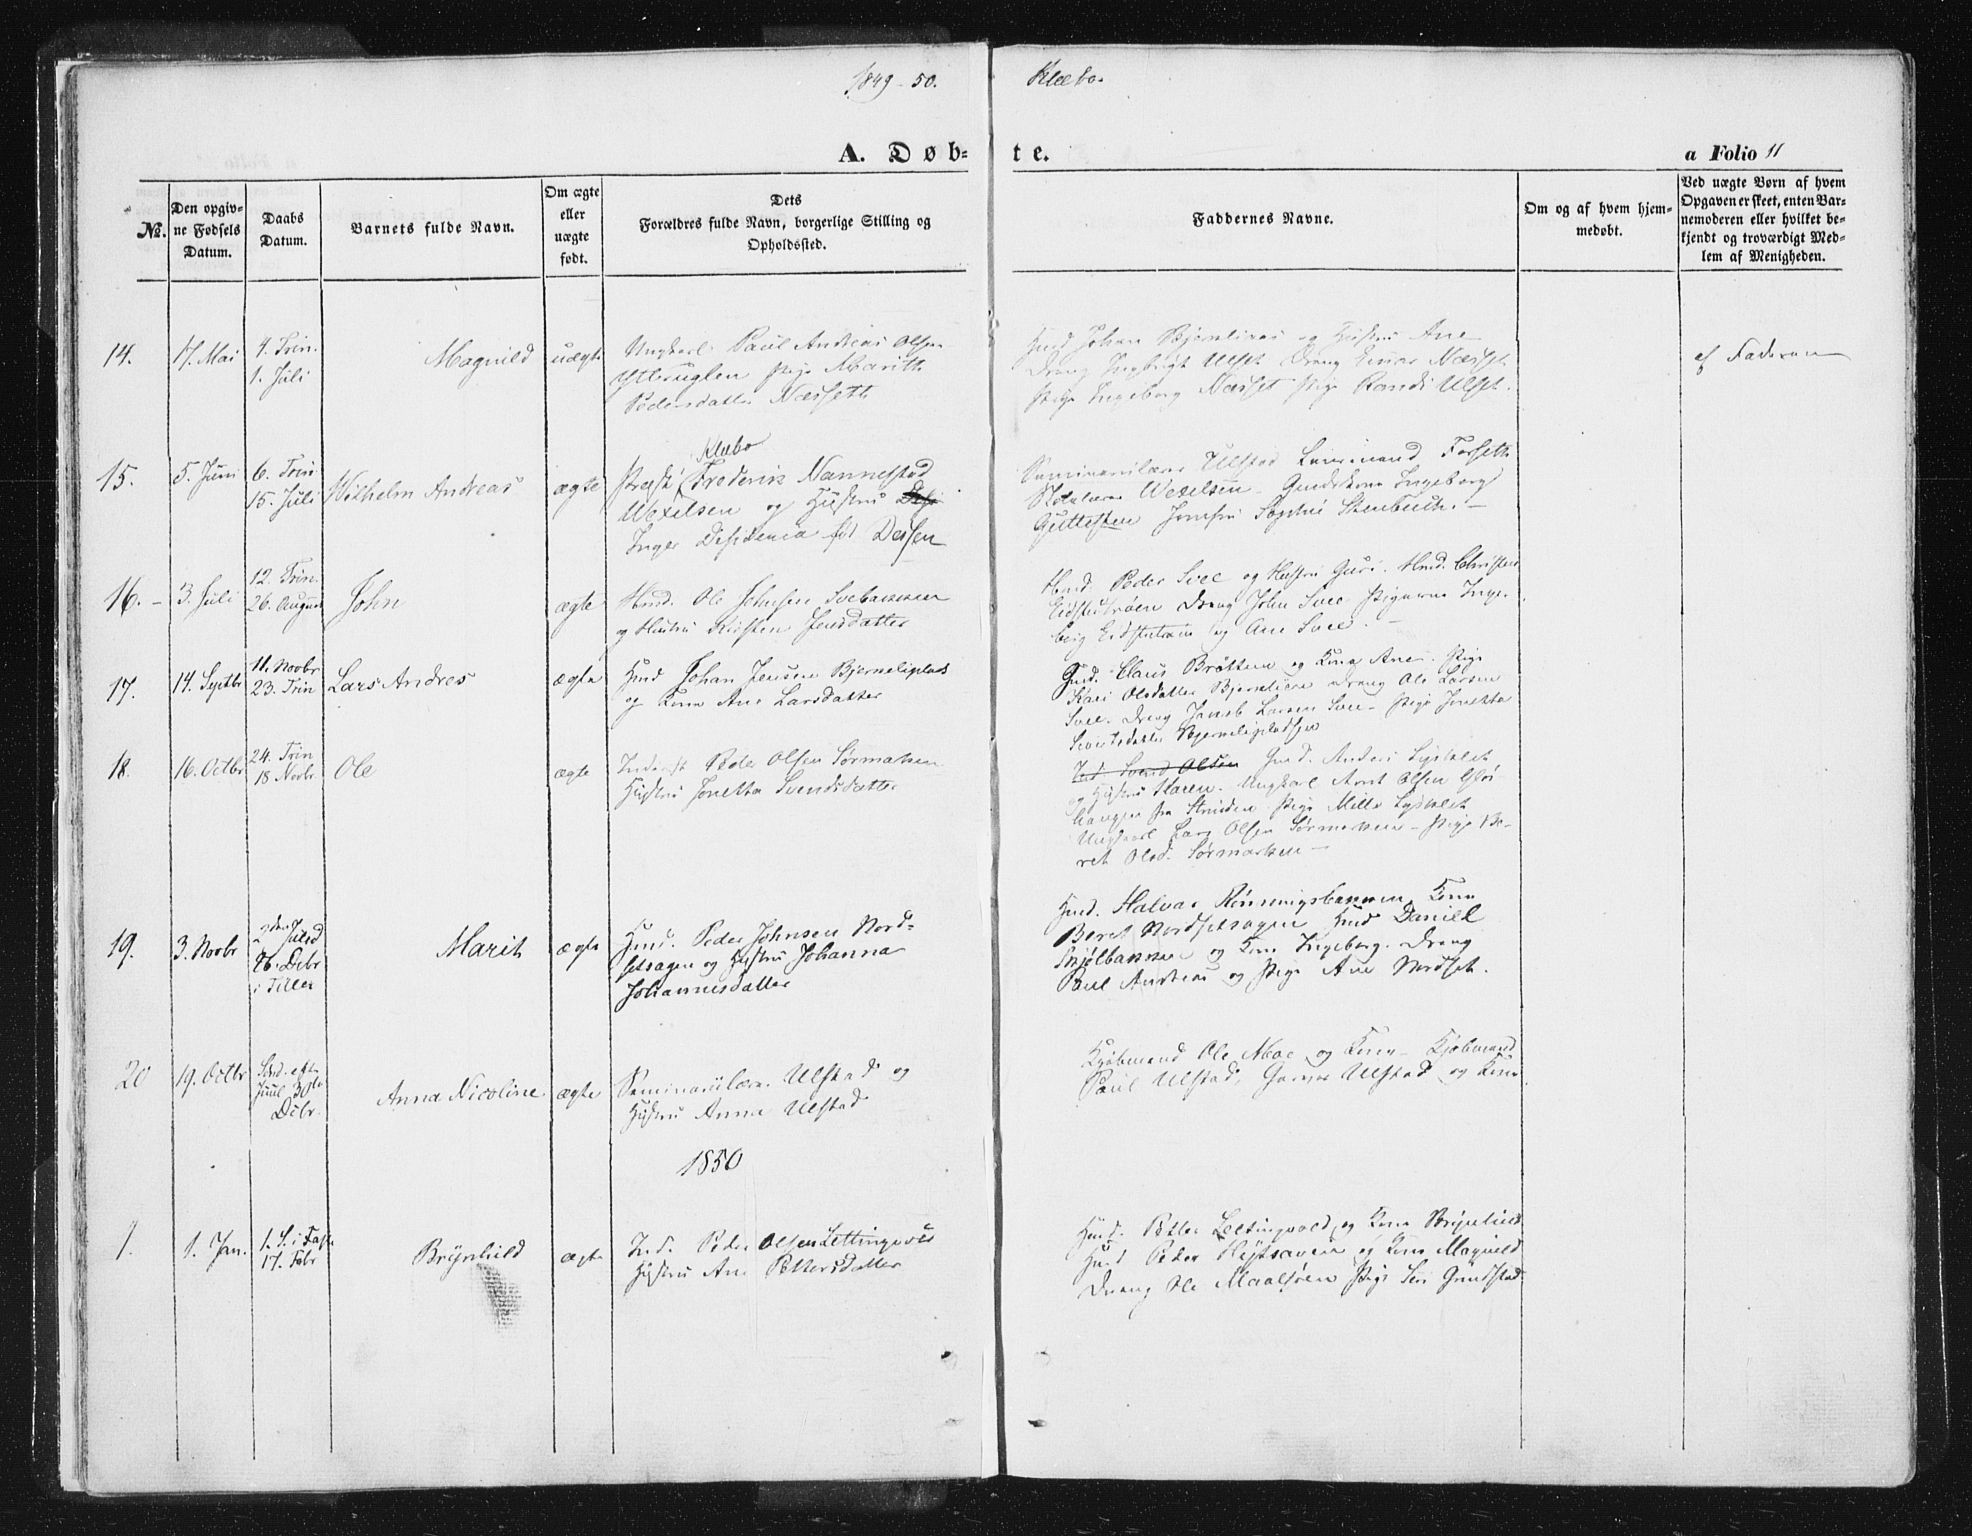 1849-50.
Klæbo.
A. Døb-
te.
a Folio 11
No.
Den opgiv-
ne Fødsels
Datum.
Daabs
Datum.
Barnets fulde Navn.
Om ægte
eller
uægte
født.
Dets
Forældres fulde Navn, borgerlige Stilling og
Opholdssted.
Faddernes Navne.
Om og af hvem hjem-
medøbt.
Ved uægte Børn af hvem
Opgaven er skeet, enten Bar-
nemoderen eller hvilket be-
kjendt og troværdigt Med-
lem af Menigheden.
14.
17. Mai
4. Trin.
1. Juli
Magnild
uægte
Ungkarl Paul Andreas Olsen
Ytteruglen Pige Marith
Pedersdatter Næsseth
Hmd Johan Bjernlivas og Hustru Ane
Dreng Ingbrigt Ulset Dreng Einar Næsset
Pige Ingeborg Næsset Pige Randi Ulset.
af Faderen
15.
5. Juni
6. Trin
15. Juli
Wilhelm Andreas
ægte
Klæbo
Præst Frederik Nannestad
Wexelsen og Hustru
Inger Desideria fød Dessen
Seminarielærer Ulstad Lensmand Forseth
Skolelærer Wexelsen Ingeborg
Jomfru Sophie Steenbuch.
16.
3. Juli
12. Trin.
26. August
John
ægte
Hmd. Ole Johnsen Svebakken
og Hustru Kirsten Jensdatter
Hmd. Peder Svee og Hustru Guri. Hmd. Christen
Eidstutrøen Dreng John Svee Pigerne Inge-
borg Eidstutrøen og Ane Svee.
17.
14. Septbr
11. Novbr
23. Trin
Lars Andres
ægte
Hmd Johan Jensen Bjerneliplads
og Kone Ane Larsdatter
Gmd. Claus Bråtten og Kone Ane. Pige
Kari Olsdatter Bjernlien Dreng Ole Larsen
Svee. Dreng Jacob Larsen Svee Pige Jonetta
Sivertsdatter Bjerneliepladsen
18.
16. Octbr
24. Trin
18 Novbr.
Ole
ægte
Inderst Peder Olsen Sørmarken
Hustru Jonetta Svendsdatter
Ind. Svend Olsen Gmd. Anders
og Hustru Karen. Ungkarl Arnt Olsen
fra Strinden Pige Mille
Ungkarl Lars Olsen Sørmarken Pige Be-
ret Olsd. Sørmarken
19.
3. Novbr
2den Juled
26. Debr
i Tiller
Marit
ægte
Hmd. Peder Johnsen Nord-
setsagen og Hustru Johanna
Johannesdatter
Hmd. Halvar Rønningsbakken, Kone
Beret Nordsetsagen Hmd Daniel
Skjølbakken og Kone Ingeborg. Dreng
Paul Andreas og Pige Ane Nordset.
20
19. Octbr
Sönd. eft.
Juul 30te
Debr.
Anna Nicoline
ægte
Seminarielærer Ulstad og
Hustru Anna Ulstad
Kjøbmand Ole Moe og Kone Kjøbmand
Paul Ulstad, Garver Ulstad og Kone
1850
1.
1. Jan.
1. S. i Faste
17. Febr
Brÿnhild
ægte
Ind. Peder Olsen Lettingvold
Hustru Ane Pettersdatter
Hmd. Petter Lettingvold og Kone Brynhild
Hmd Peder og Kone Magnild
Dreng Ole Maalsøen Pige Seri Grindstad